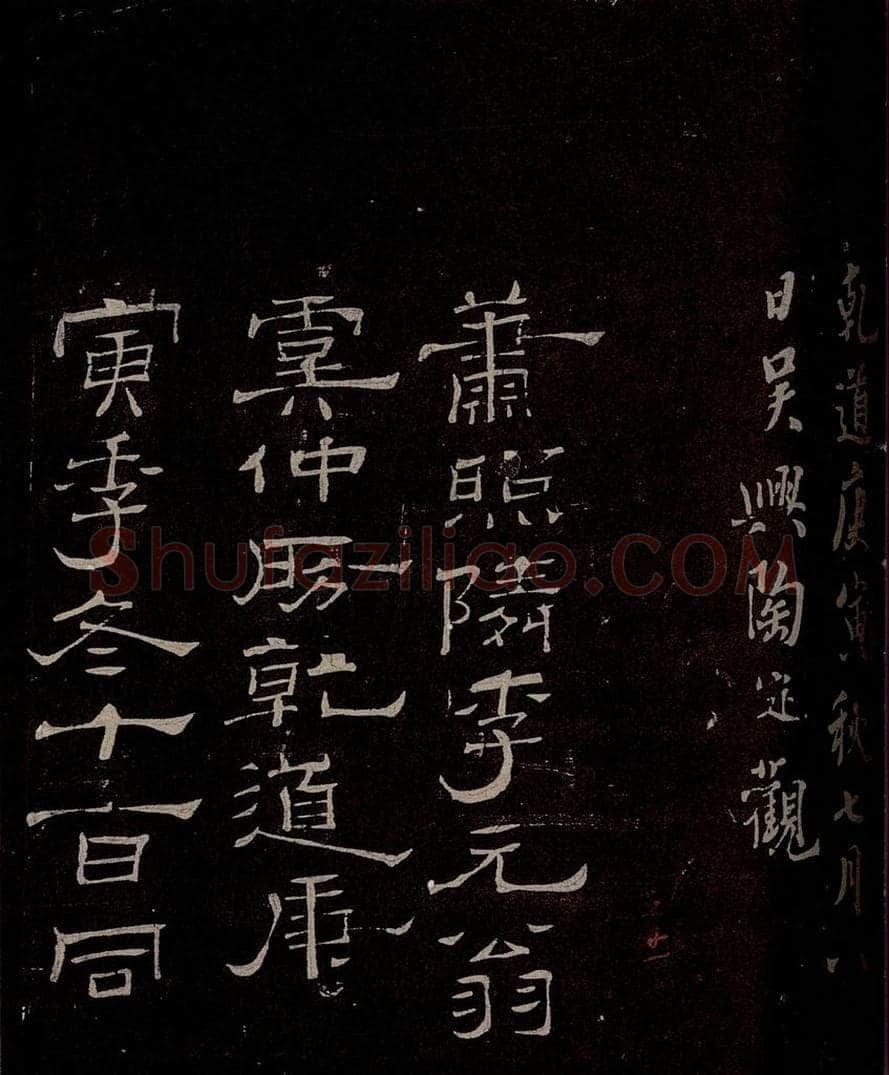 乾道庚寅秋七月八
日吴興陶定觀
蕭照隣李元翁
虞仲房乾道庚
寅季冬十一日同
Shufaziliao.COM